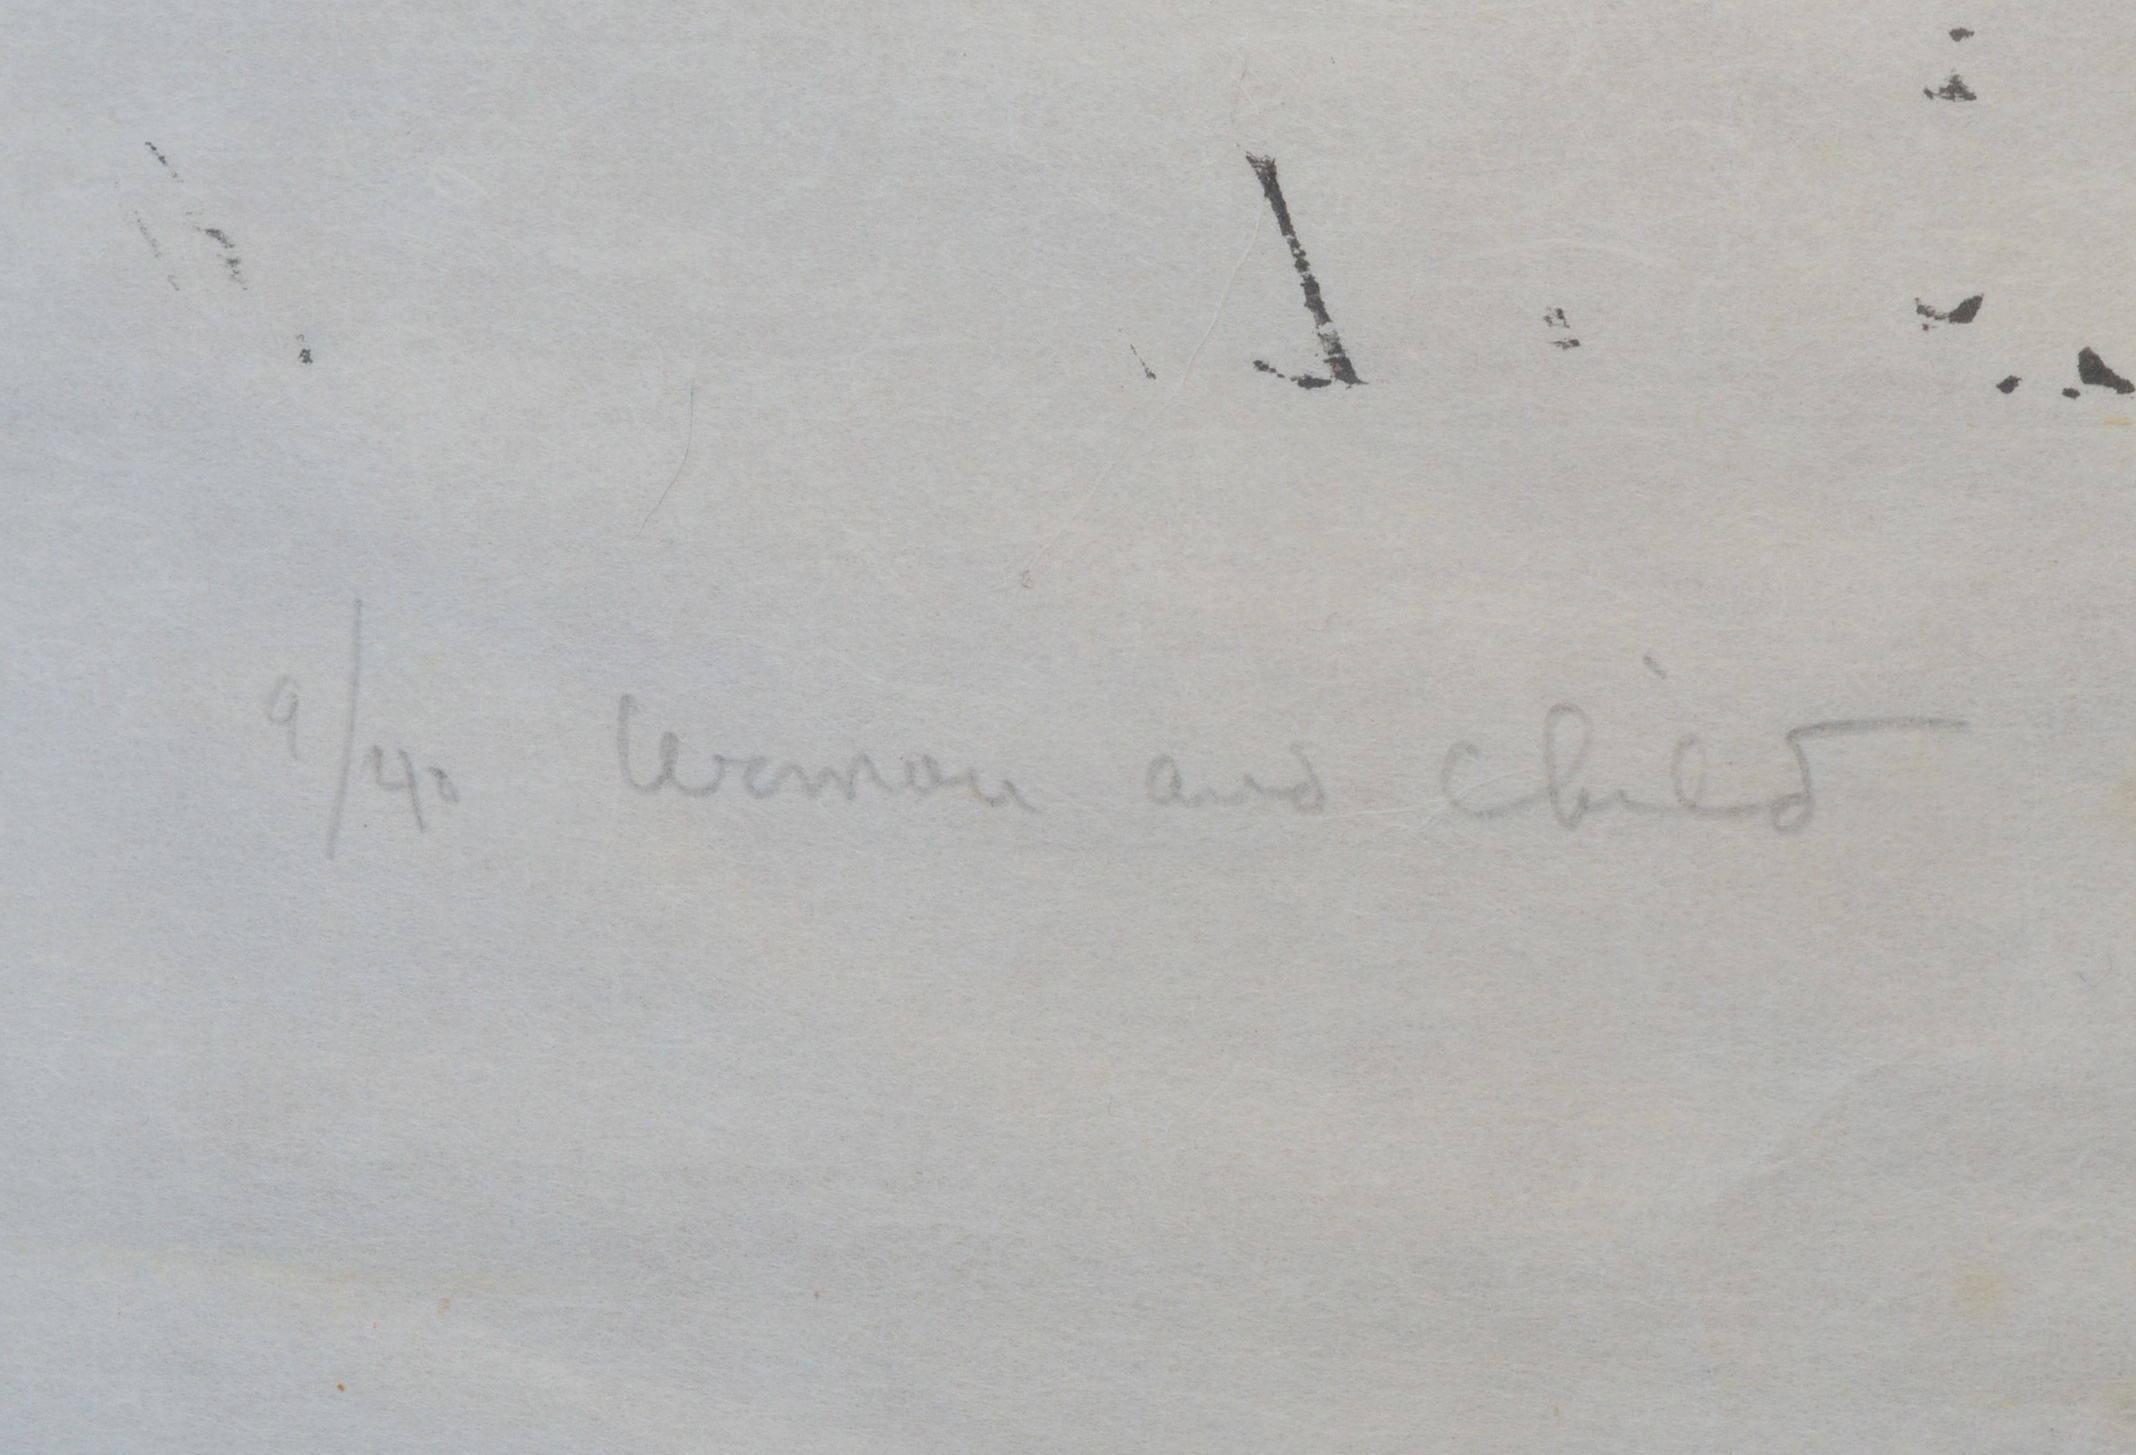 9/40 Woman and Child